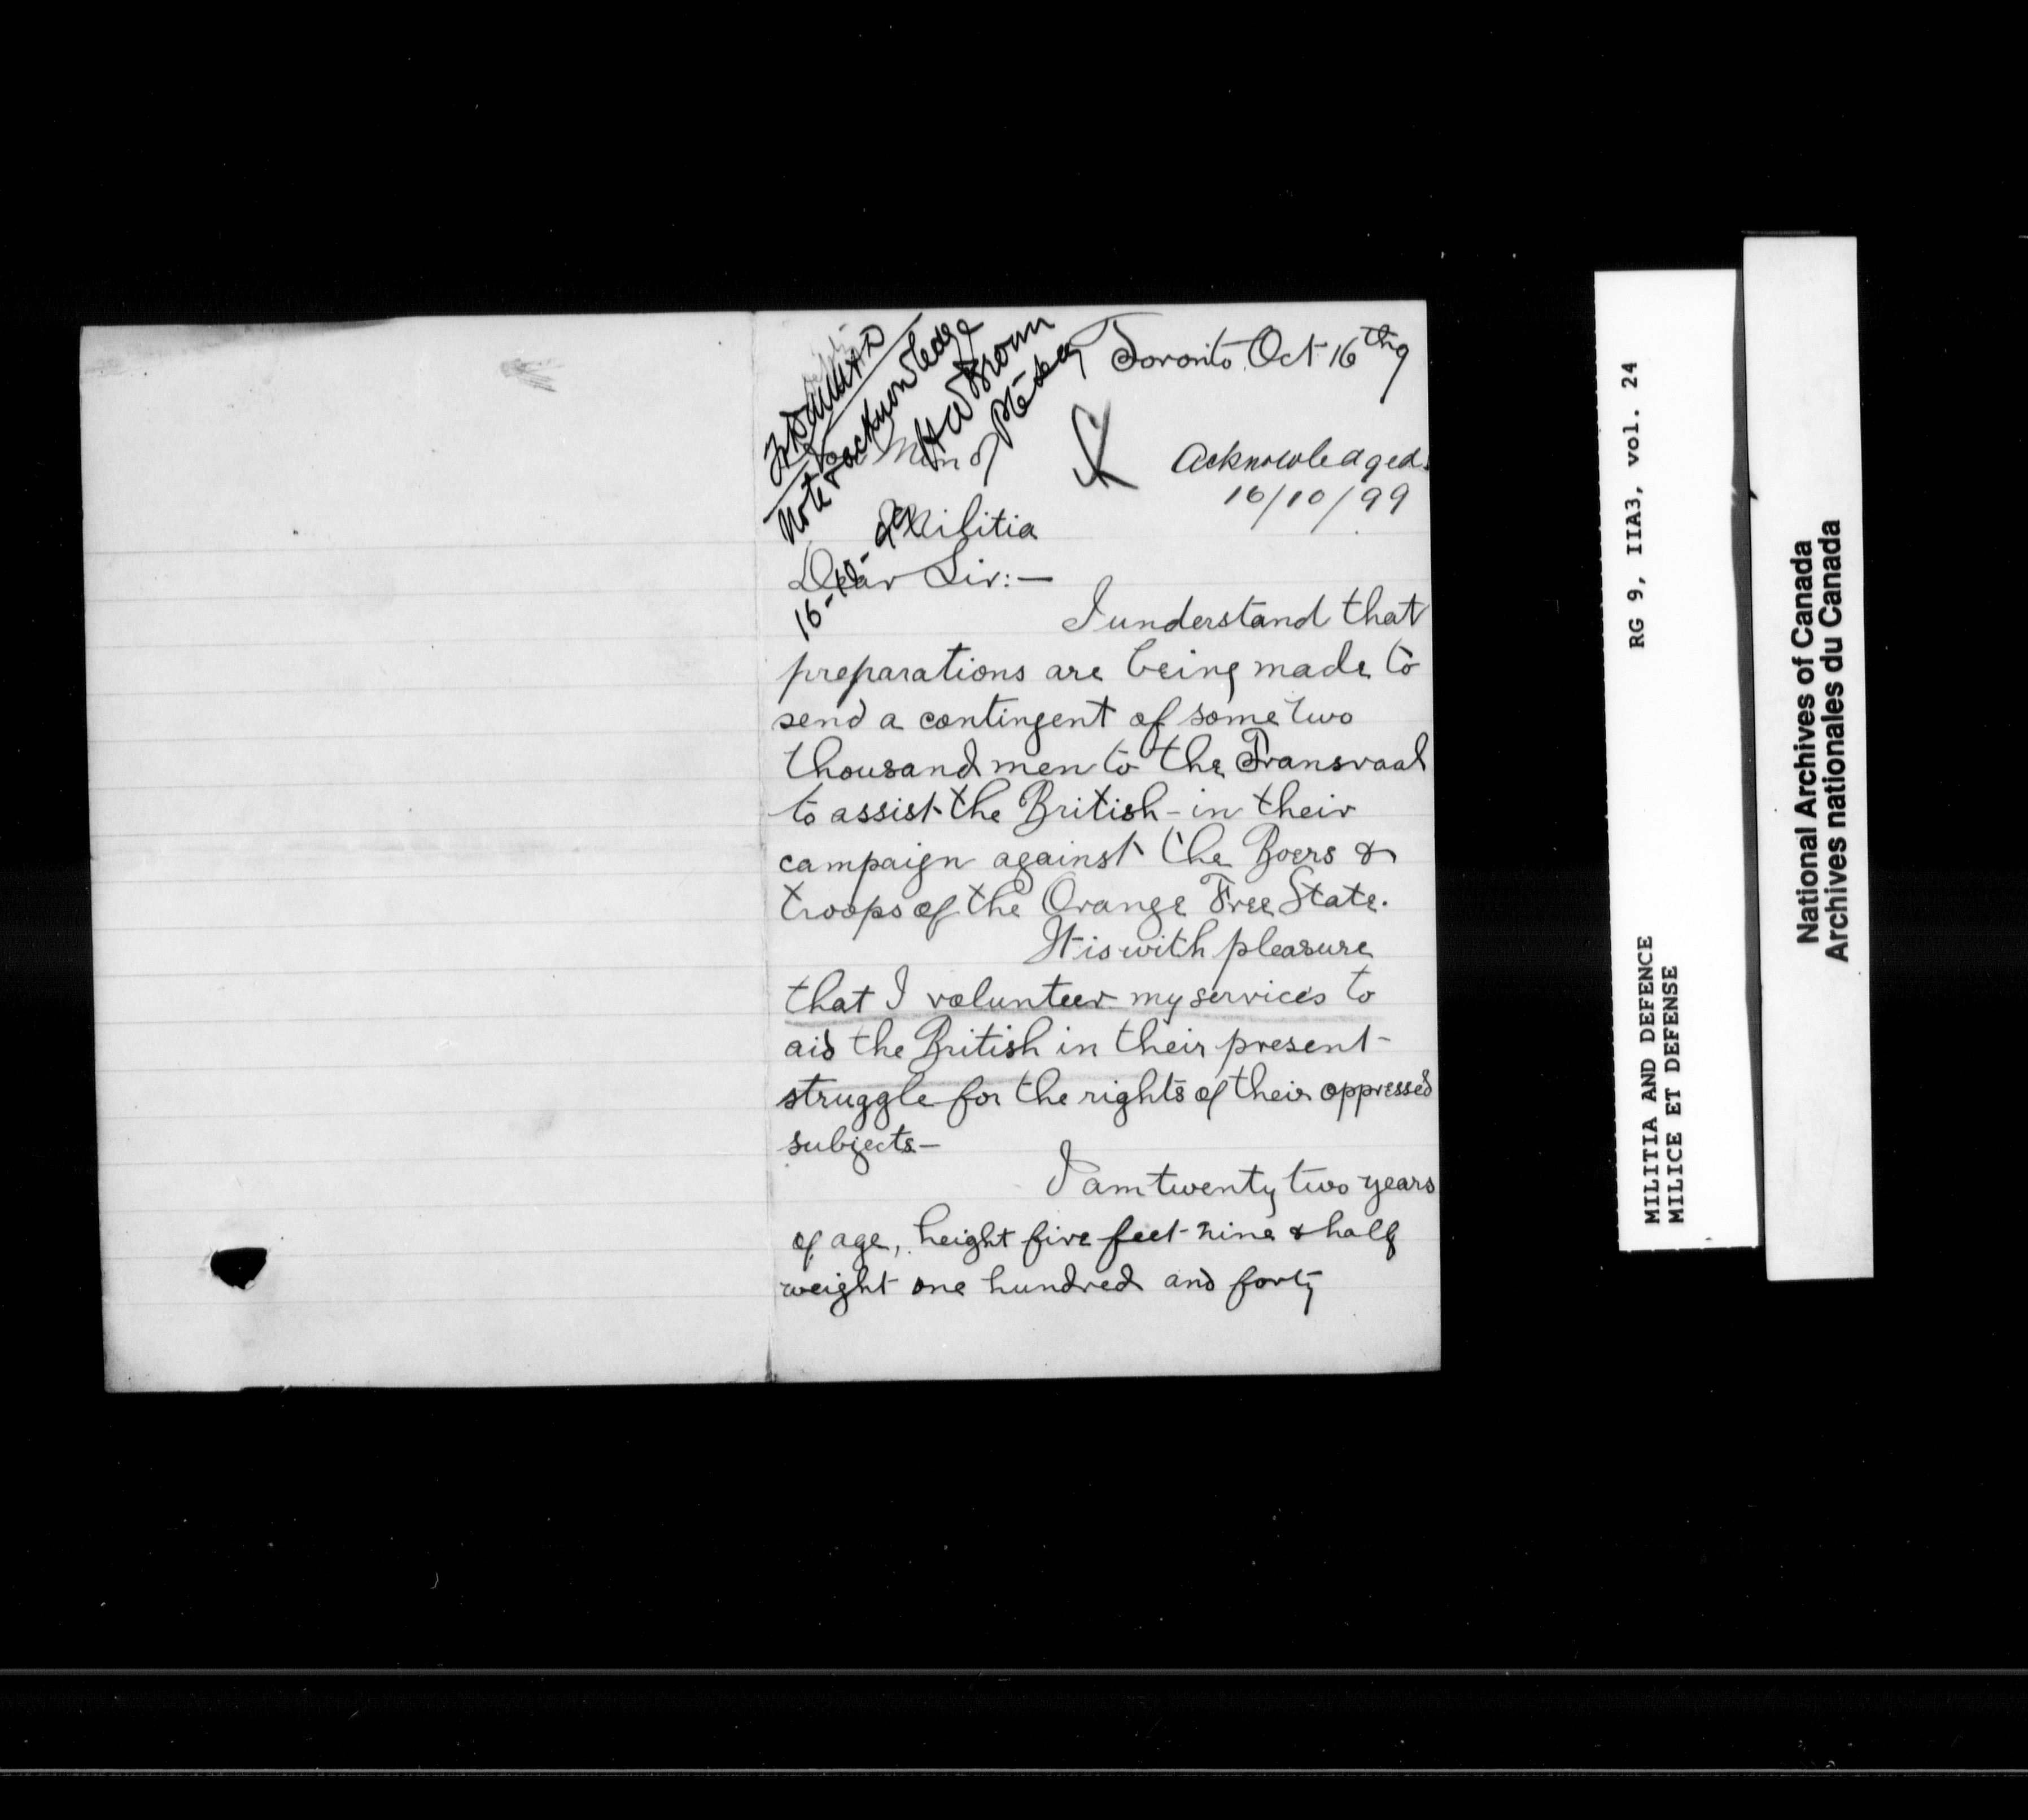 Toronto Oct 16th 9
Note & acknowledge
H W Brown
16-10-99
Acknowledged
16/10/99
Min of
Militia
Dear Sir:—
I understand that
preparations are being made to
send a contingent of some two
thousand men to the Transvaal
to assist the British - in their
campaign against the Boers &
troops of the Orange Free State.
It is with pleasure
that I volunteer my services to
aid the British in their present -
struggle for the rights of their oppressed
subjects —
I am twenty two years
of age, height five feet - nine & half
weight one hundred and forty
RG 9, IIA3, vol. 24
MILITIA AND DEFENCE
MILICE ET DEFENSE
National Archives of Canada
Archives nationales du Canada